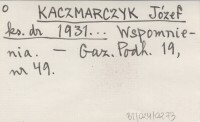 KACZMARCZYK Józef
ks. dr 1931... Wspomnie-
nia. — Gaz. Podh. 19,
nr 49.